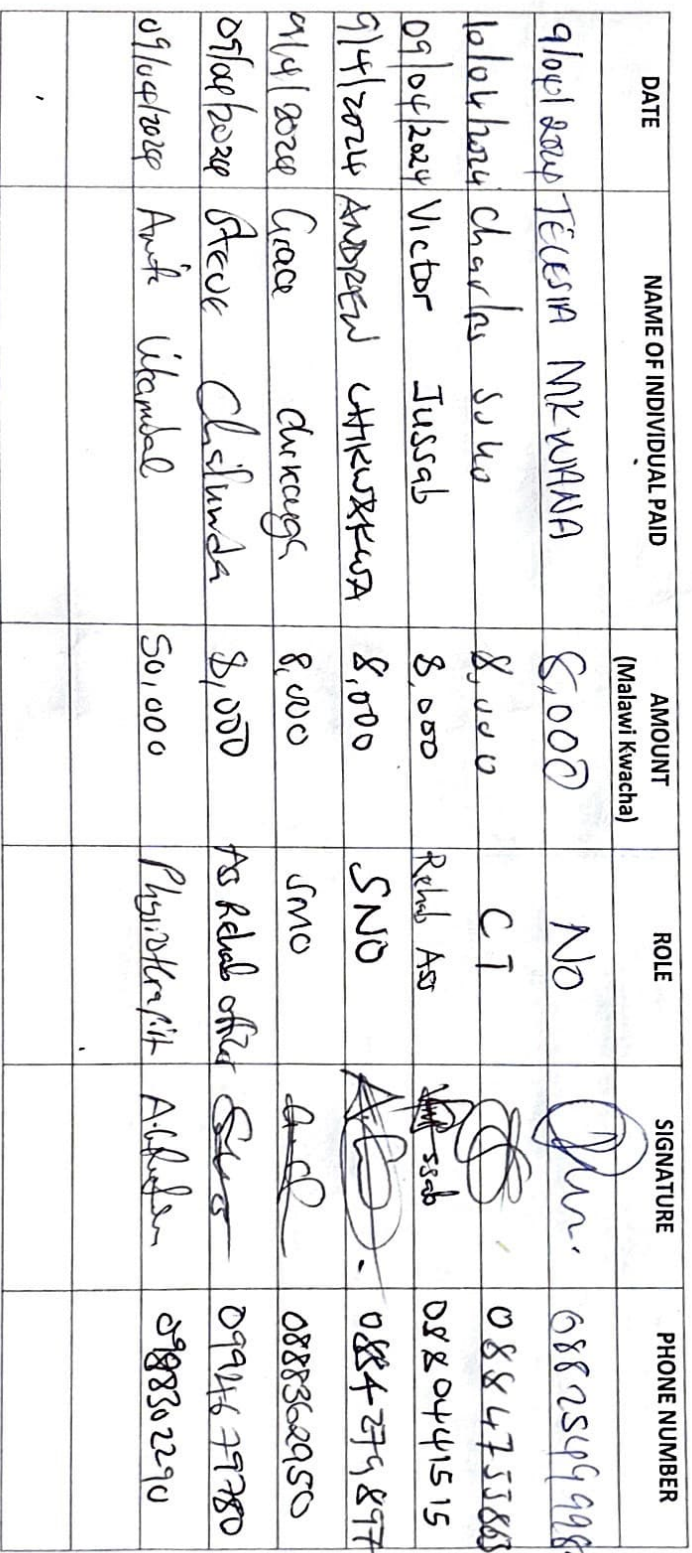 DATE NAME OF INDIVIDUAL PAID AMOUNT (Malawi Kwacha) ROLE SIGNATURE PHONE NUMBER
9/04/2024 TELESIA MKWANA 8,000 NO
10/04/2024 Charles Suko 8,000 CT 0884755863
09/04/2024 Victor Jussab 8,000 Rehab Ass ssab 0880441515
9/4/2024 ANDREW CHIKWAKWA 8,000 SNO 0884279897
9/4/2024 Grace 8,000 SMO 0888362950
09/04/2024 Steve Chilunda 8,000 As Rehab officer 0994679780
09/04/2024 50,000 Physiotherapist